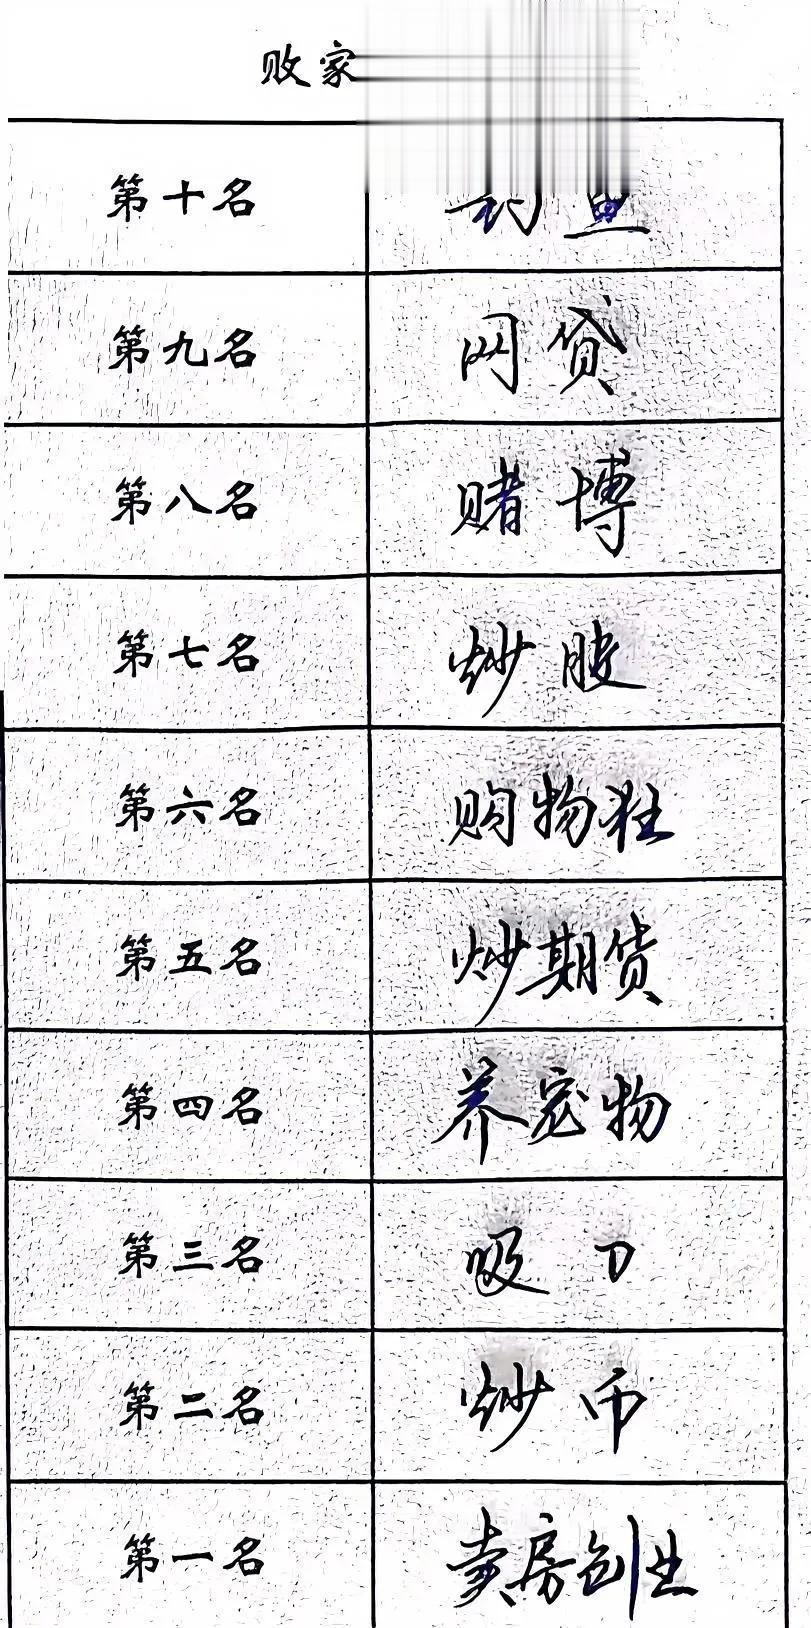 败家
第十名 钓鱼
第九名 网贷
第八名 赌博
第七名 炒股
第六名 购物狂
第五名 炒期货
第四名 养宠物
第三名 吸刀
第二名 炒币
第一名 卖房创业